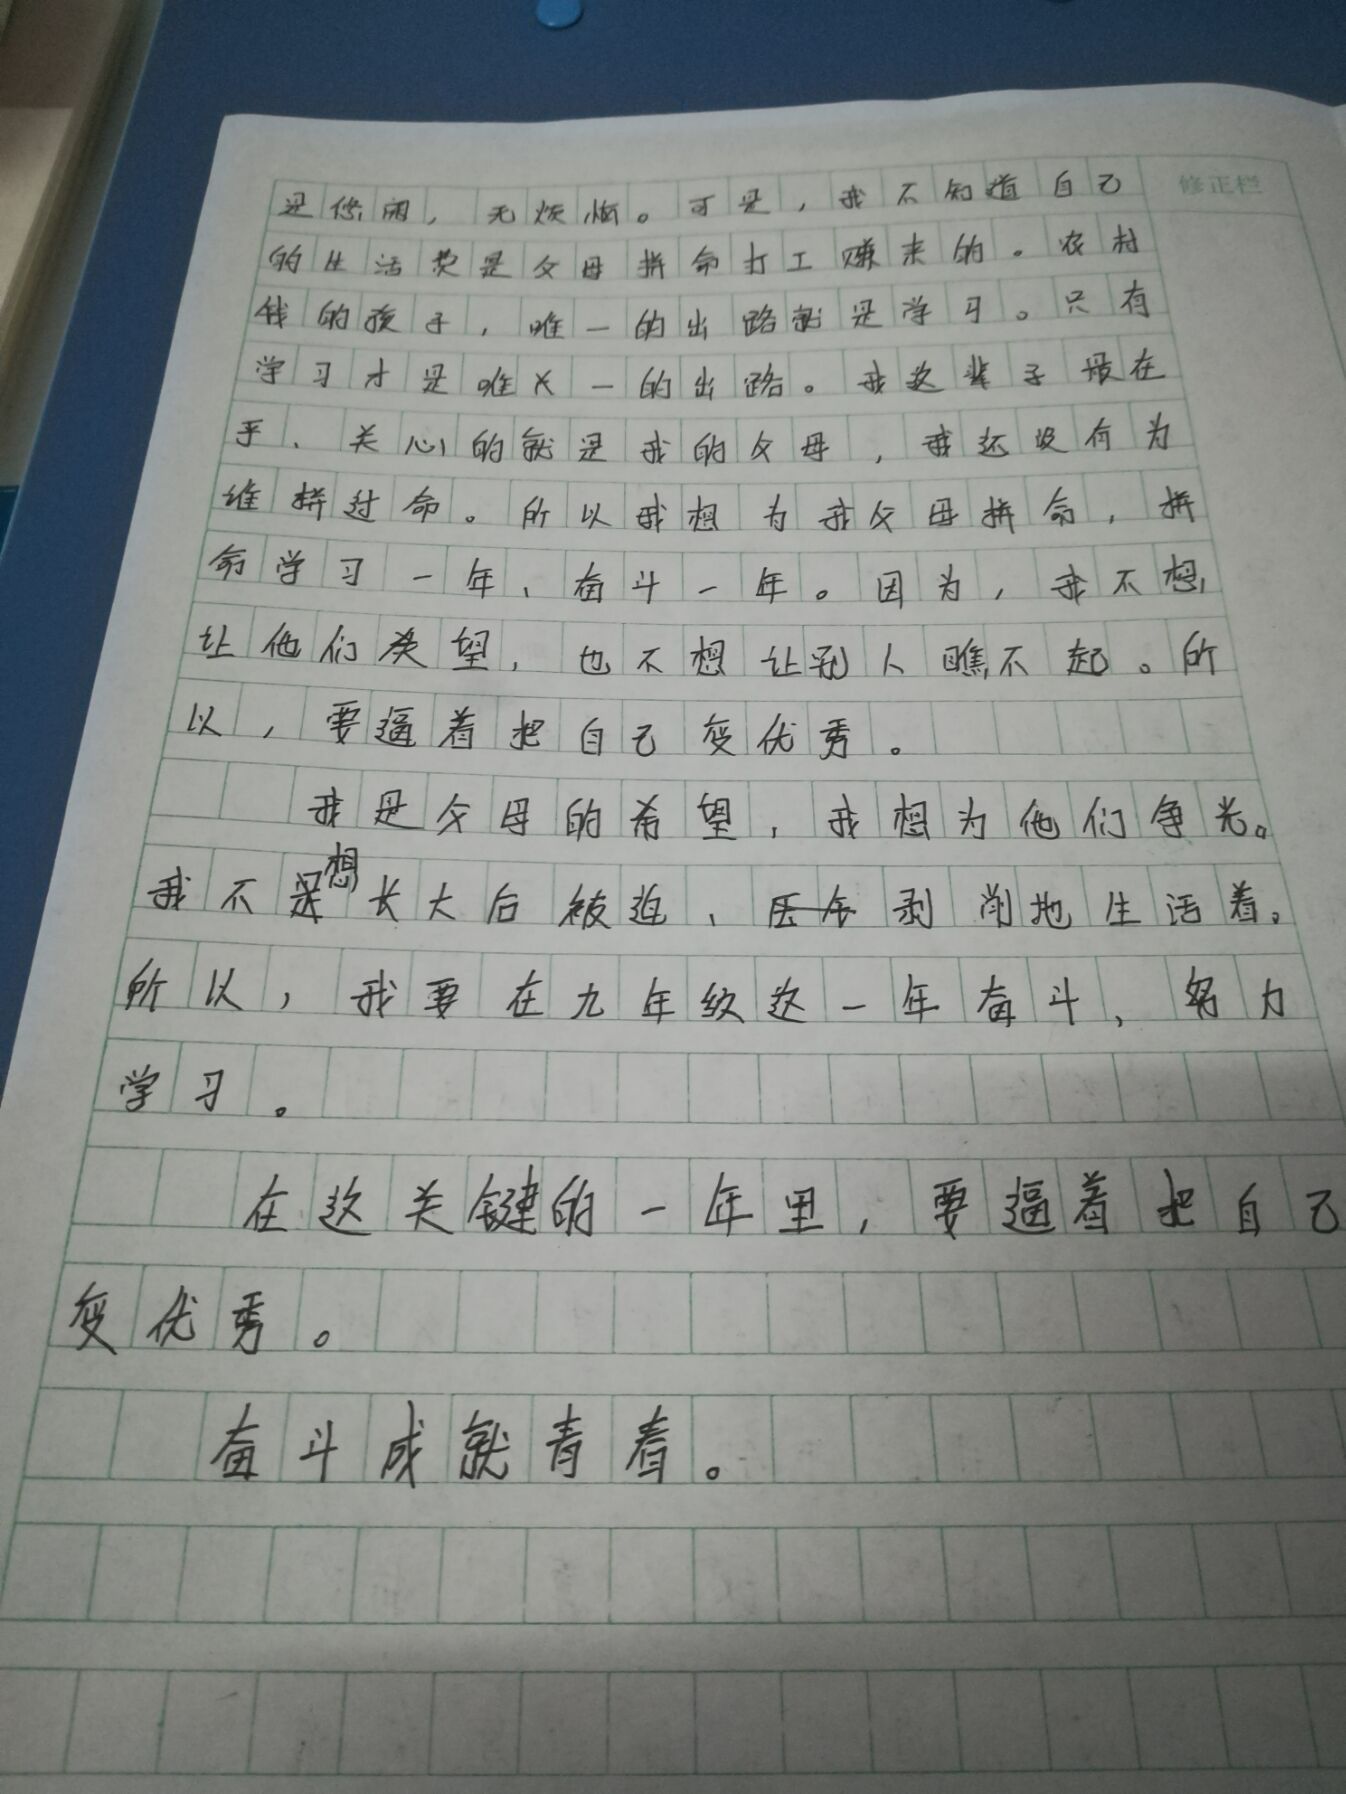 修正栏
是悠闲，无烦恼。可是，我不知道自己
的生活费是父母拼命打工赚来的。农村
钱的孩子，唯一的出路就是学习。只有
学习才是唯一的出路。我这辈子最在
乎、关心的就是我的父母，我还没有为
谁拼过命。所以我想为我父母拼命，拼
命学习一年、奋斗一年。因为，我不想
让他们失望，也不想让别人瞧不起。所
以，要逼着把自己变优秀。
我是父母的希望，我想为他们争光。
我不想长大后被迫、剥削地生活着。
所以，我要在九年级这一年奋斗，努力
学习。
在这关键的一年里，要逼着把自己
变优秀。
奋斗成就青春。